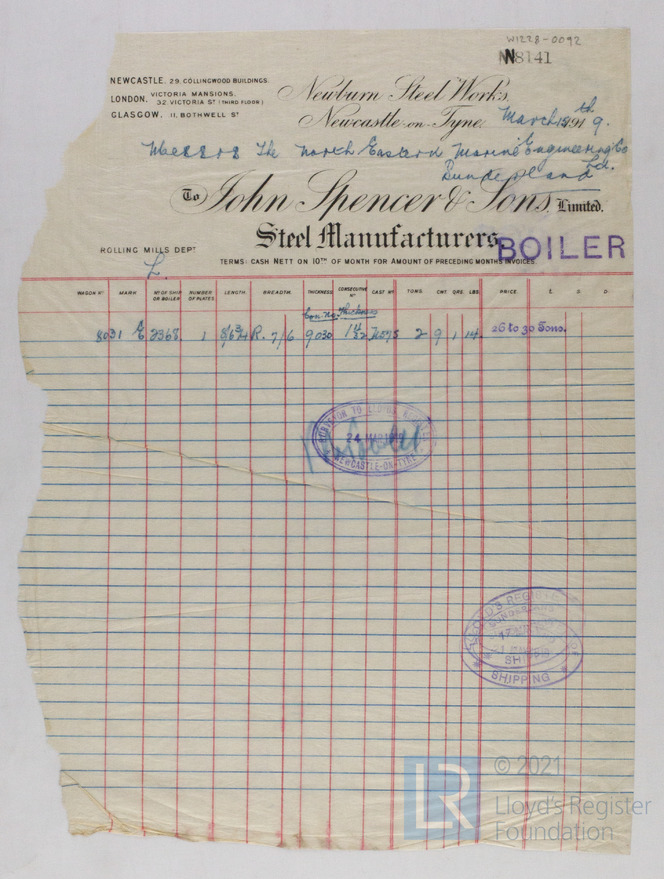 W1228-0092
N8141
NEWCASTLE. 29, COLLINGWOOD BUILDINGS.
LONDON. VICTORIA MANSIONS, 32, VICTORIA ST (THIRD FLOOR)
GLASGOW. 11, BOTHWELL ST
Newburn Steel Works,
Newcastle-on-Tyne, March 19th 1919.
Messrs The North Eastern Marine Engineering Co Ltd.
Sunderland
To John Spencer & Sons, Limited.
Steel Manufacturers,
BOILER
ROLLING MILLS DEPT
TERMS: CASH NETT ON 10TH OF MONTH FOR AMOUNT OF PRECEDING MONTHS INVOICES.
WAGON No MARK No OF SHIP OR BOILER NUMBER OF PLATES LENGTH. BREADTH. THICKNESS CONSECUTIVE No CAST No TONS. CWT QRS. LBS. PRICE. £ S D
Con. No. Thickness
8031 2368. 1 R. 7/6 9030 2 9 1 14. 26 to 30 Tons.
SURVEYOR TO LLOYD'S REGISTER
24 MAR
NEWCASTLE-ON-TYNE
LLOYD'S REGISTER
SUNDERLAND
SHIPPING
© 2021
LR Lloyd's Register
Foundation